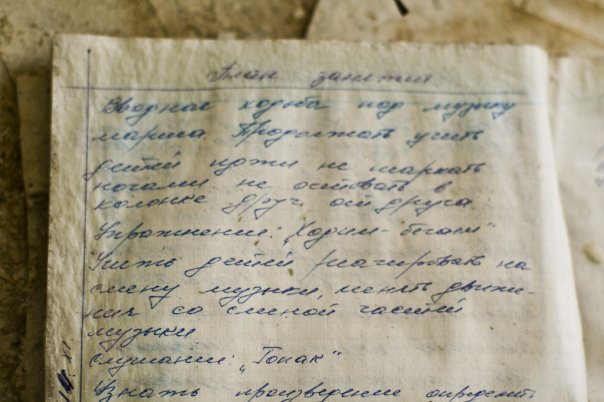 План занятия
Вводная ходьба под музыку
марша. Продолжать учить
детей ходьбы не шаркать
ногами не отставать в
колонке друг от друга
Упражнение: „Ходим-бегаем"
Учить детей реагировать на
смену музыки, менять движе-
ния со сменой частей
музыки
Слушание: „Гопак"
Узнать произведение определить